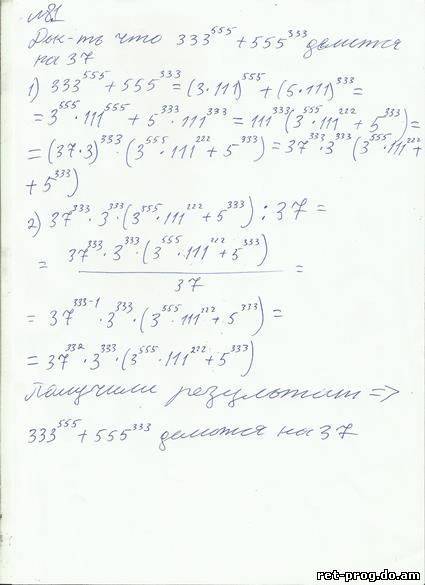 №1
Док-ть что 333⁵⁵⁵ + 555³³³ делится
на 37
1) 333⁵⁵⁵ + 555³³³ = (3·111)⁵⁵⁵ + (5·111)³³³ =
= 3⁵⁵⁵ · 111⁵⁵⁵ + 5³³³ · 111³³³ = 111³³³(3⁵⁵⁵ · 111²²² + 5³³³) =
= (37·3)³³³ · (3⁵⁵⁵ · 111²²² + 5³³³) = 37³³³ · 3³³³ (3⁵⁵⁵ · 111²²² +
+ 5³³³)
2) 37³³³ · 3³³³ · (3⁵⁵⁵ · 111²²² + 5³³³) : 37 =
= 37³³³ · 3³³³ · (3⁵⁵⁵ · 111²²² + 5³³³)
37 =
= 37³³³⁻¹ · 3³³³ · (3⁵⁵⁵ · 111²²² + 5³³³) =
= 37³³² · 3³³³ · (3⁵⁵⁵ · 111²²² + 5³³³)
Получили результат =>
333⁵⁵⁵ + 555³³³ делится на 37
ret-prog.do.am